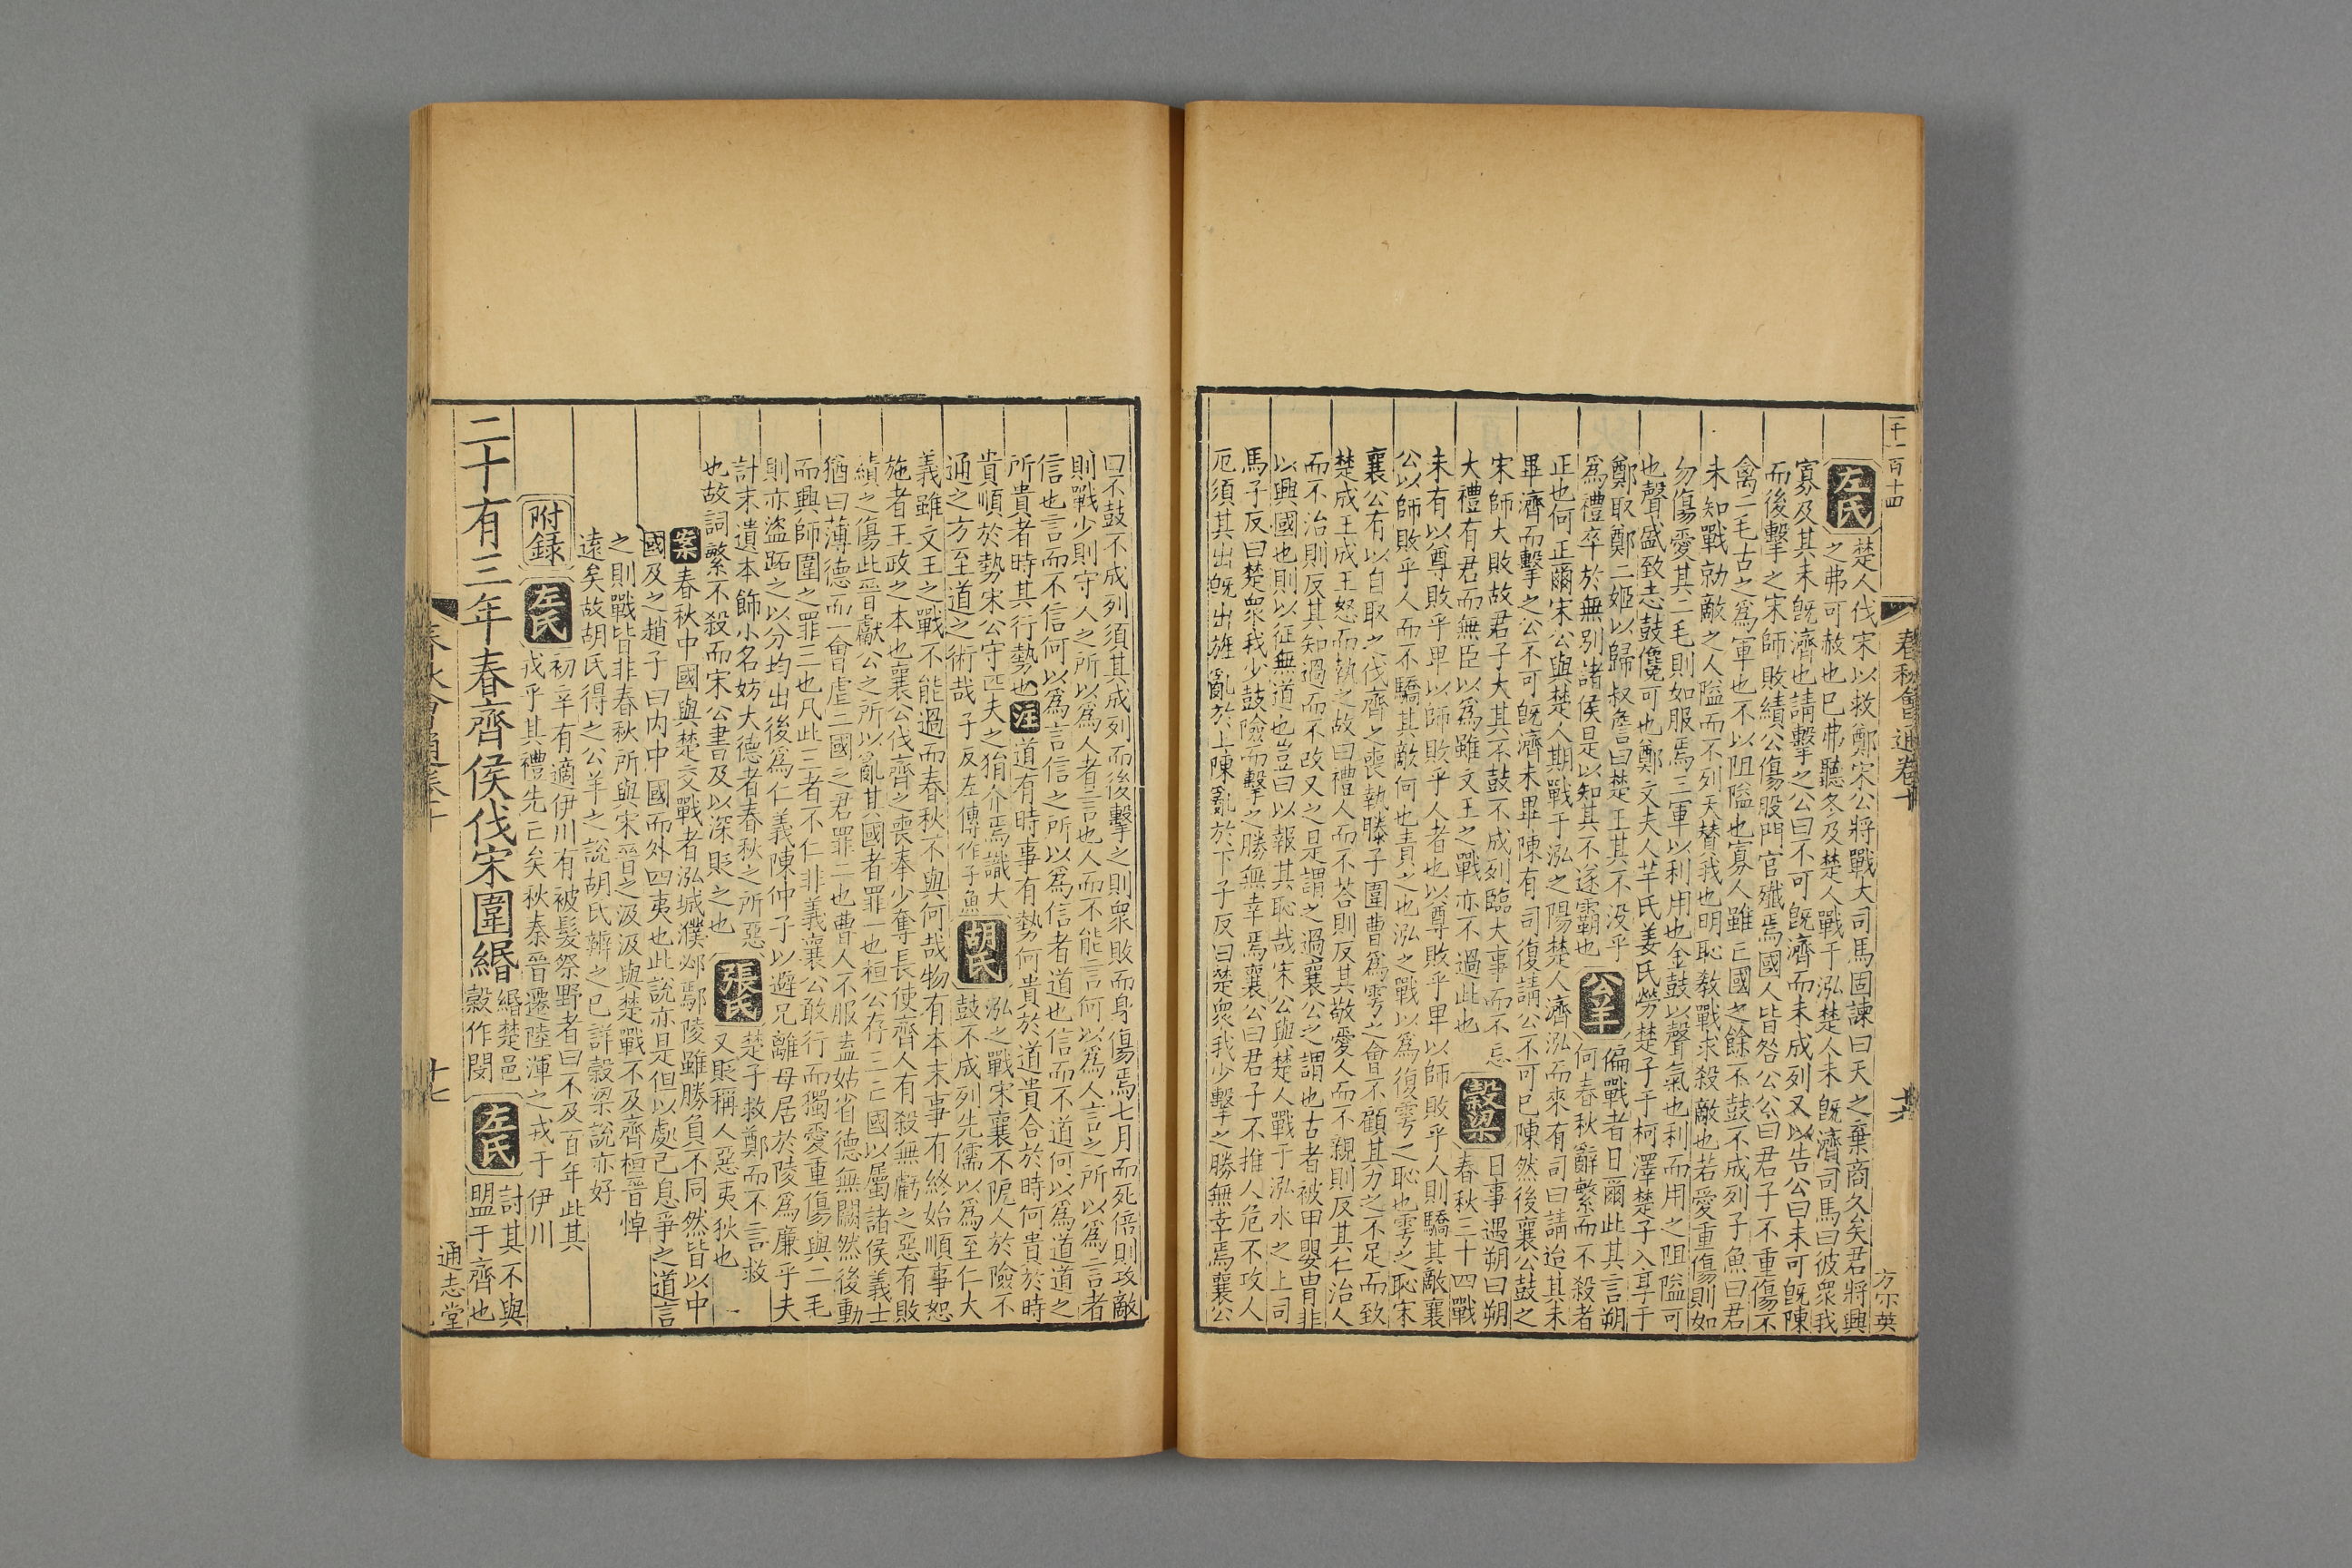 一千一百十四
春秋會通卷十
十六
左氏
楚人伐宋以救鄭宋公將戰大司馬固諫曰天之棄商久矣君將興
之弗可赦也已弗聽冬及楚人戰于泓楚人未旣濟司馬曰彼衆我
寡及其未旣濟也請擊之公曰不可旣濟而未成列又以告公曰未可旣陳
而後擊之宋師敗績公傷股門官殲焉國人皆咎公公曰君子不重傷不
禽二毛古之爲軍也不以阻隘也寡人雖亡國之餘不鼓不成列子魚曰君
未知戰勍敵之人隘而不列天贊我也明恥敎戰求殺敵也若愛重傷則如
勿傷愛其二毛則如服焉三軍以利用也金鼓以聲氣也利而用之阻隘可
也聲盛致志鼓儳可也鄭文夫人芊氏姜氏勞楚子于柯澤楚子入享于
鄭取鄭二姬以歸叔詹曰楚王其不没乎
爲禮卒於無別諸侯是以知其不遂霸也
公羊
偏戰者日爾此其言朔
何春秋辭繁而不殺者
正也何正爾宋公與楚人期戰于泓之陽楚人濟泓而來有司曰請迨其未
畢濟而擊之公不可旣濟未畢陳有司復請公不可已陳然後襄公鼓之
宋師大敗故君子大其不鼓不成列臨大事而不忘
大禮有君而無臣以爲雖文王之戰亦不過此也
穀梁
日事遇朔曰朔
春秋三十四戰
未有以尊敗乎卑以師敗乎人者也以尊敗乎卑以師敗乎人則驕其敵襄
公以師敗乎人而不驕其敵何也責之也泓之戰以爲復雩之恥也雩之恥宋
襄公有以自取之伐齊之喪執滕子圍曹爲雩之會不顧其力之不足而致
楚成王成王怒而執之故曰禮人而不荅則反其敬愛人而不親則反其仁治人
而不治則反其知過而不改又之是謂之過襄公之謂也古者被甲嬰冑非
以興國也則以征無道也豈曰以報其恥哉宋公與楚人戰于泓水之上司
馬子反曰楚衆我少鼓險而擊之勝無幸焉襄公曰君子不推人危不攻人
厄須其出旣出旌亂於上陳亂於下子反曰楚衆我少擊之勝無幸焉襄公
曰不鼓不成列須其成列而後擊之則衆敗而身傷焉七月而死倍則攻敵
則戰少則守人之所以爲人者言也人而不能言何以爲人言之所以爲言者
信也言而不信何以爲言信之所以爲信者道也信而不道何以爲道道之
所貴者時其行勢也注道有時事有勢何貴於道貴合於時何貴於時
貴順於勢宋公守匹夫之狷介焉識大
通之方至道之術哉子反左傳作子魚
胡氏
泓之戰宋襄不阨人於險不
鼓不成列先儒以爲至仁大
義雖文王之戰不能過而春秋不與何哉物有本末事有終始順事恕
施者王政之本也襄公伐齊之喪奉少奪長使齊人有殺無虧之惡有敗
績之傷此晉獻公之所以亂其國者罪一也桓公存三亡國以屬諸侯義士
猶曰薄德而一會虐二國之君罪二也曹人不服盍姑省德無闕然後動
而興師圍之罪三也凡此三者不仁非義襄公敢行而獨愛重傷與二毛
則亦盜跖之以分均出後爲仁義陳仲子以避兄離母居於陵爲廉乎夫
計末遺本飾小名妨大德者春秋之所惡
也故詞繁不殺而宋公書及以深貶之也
張氏
楚子救鄭而不言救
又貶稱人惡夷狄也
案春秋中國與楚交戰者泓城濮邲鄢陵雖勝負不同然皆以中
國及之趙子曰内中國而外四夷也此說亦是但以處己息爭之道言
之則戰皆非春秋所與宋晉之汲汲與楚戰不及齊桓晉悼
遠矣故胡氏得之公羊之說胡氏辨之已詳穀梁說亦好
附録
左氏
初辛有適伊川有被髮祭野者曰不及百年此其
戎乎其禮先亡矣秋秦晉遷陸渾之戎于伊川
二十有三年春齊侯伐宋圍緡
緡楚邑
穀作閔
左氏
討其不與
盟于齊也
十七
通志堂